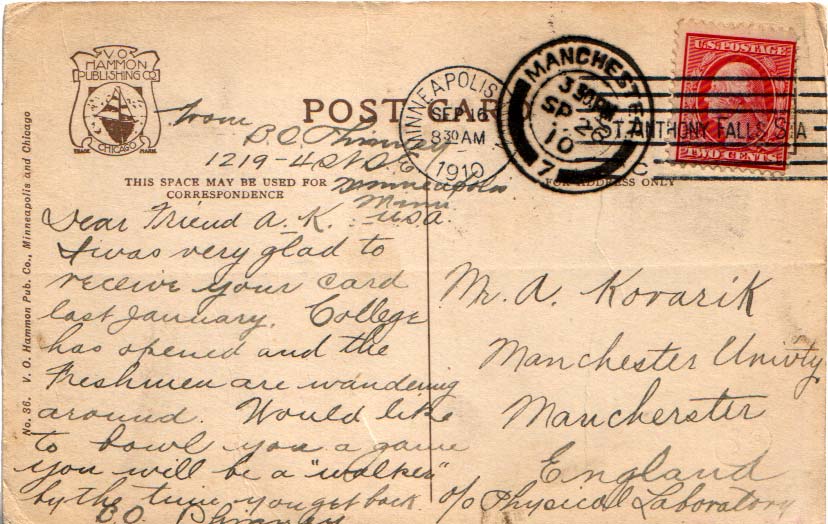 V.O.
HAMMON
PUBLISHING CO.
TRADE MARK
CHICAGO
POST CARD
MINNEAPOLIS
SEP 16
8 30 AM
1910
MANCHESTER
3 30 PM
SP 26
10
7
U.S. POSTAGE
TWO CENTS
ST. ANTHONY FALLS STA
C
From
B.C.
1219-4 St S.E.
Minneapolis
Minn
USA.
THIS SPACE MAY BE USED FOR
CORRESPONDENCE
FOR ADDRESS ONLY
Dear Friend A. K. :-
I was very glad to
receive your card
last January. College
has opened and the
Freshmen are wandering
around. Would like
to bowl you a game
you will be a "walker"
by the time you get back
Mr. A. Kovarik
Manchester Univty
Mancherster
England
c/o Physical Laboratory
No. 36. V. O. Hammon Pub. Co., Minneapolis and Chicago